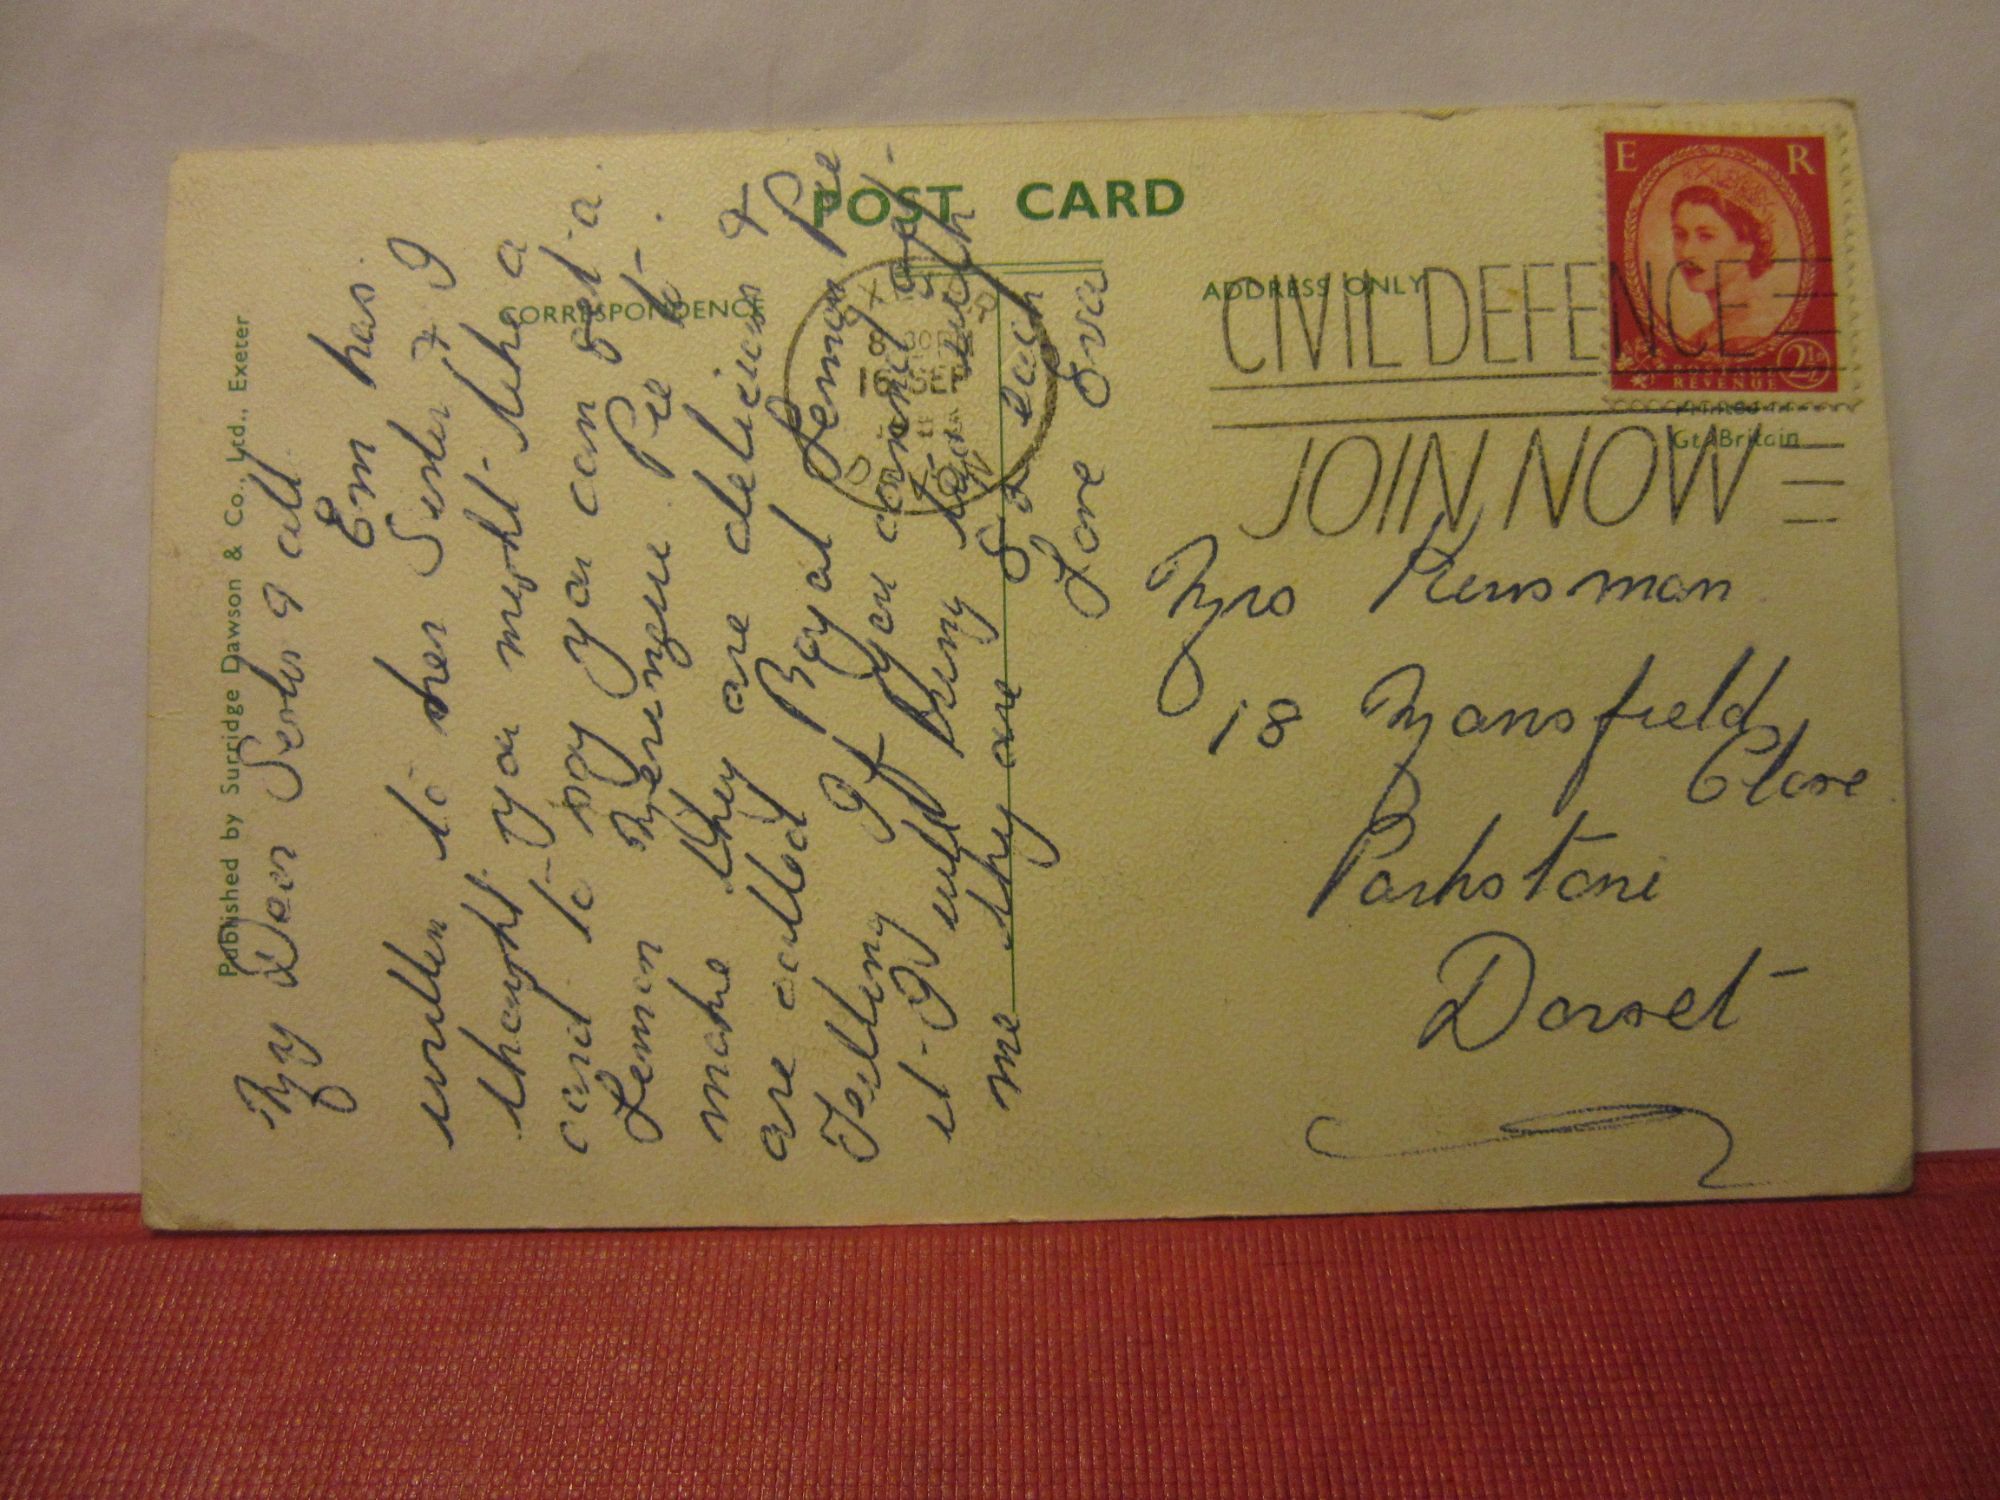 POST CARD
CORRESPONDENCE
ADDRESS ONLY
Published by Surridge Dawson & Co., Ltd., Exeter
E R
2½
REVENUE
CIVIL DEFENCE
JOIN NOW
Gt. Britain
EXETER
16 SEP
DEVON
My Dear & all
Em has
written to her Sister & I
thought you might like a
card to say you can get a
Lemon Meringue Pie to
make they are delicious &
are called Royal Lemon Pie
Filling If you cannot get
it I will bring you with
me they are 8d each
Love Eva
Mrs Kinsman
18 Mansfield
Close
Parkstone
Dorset